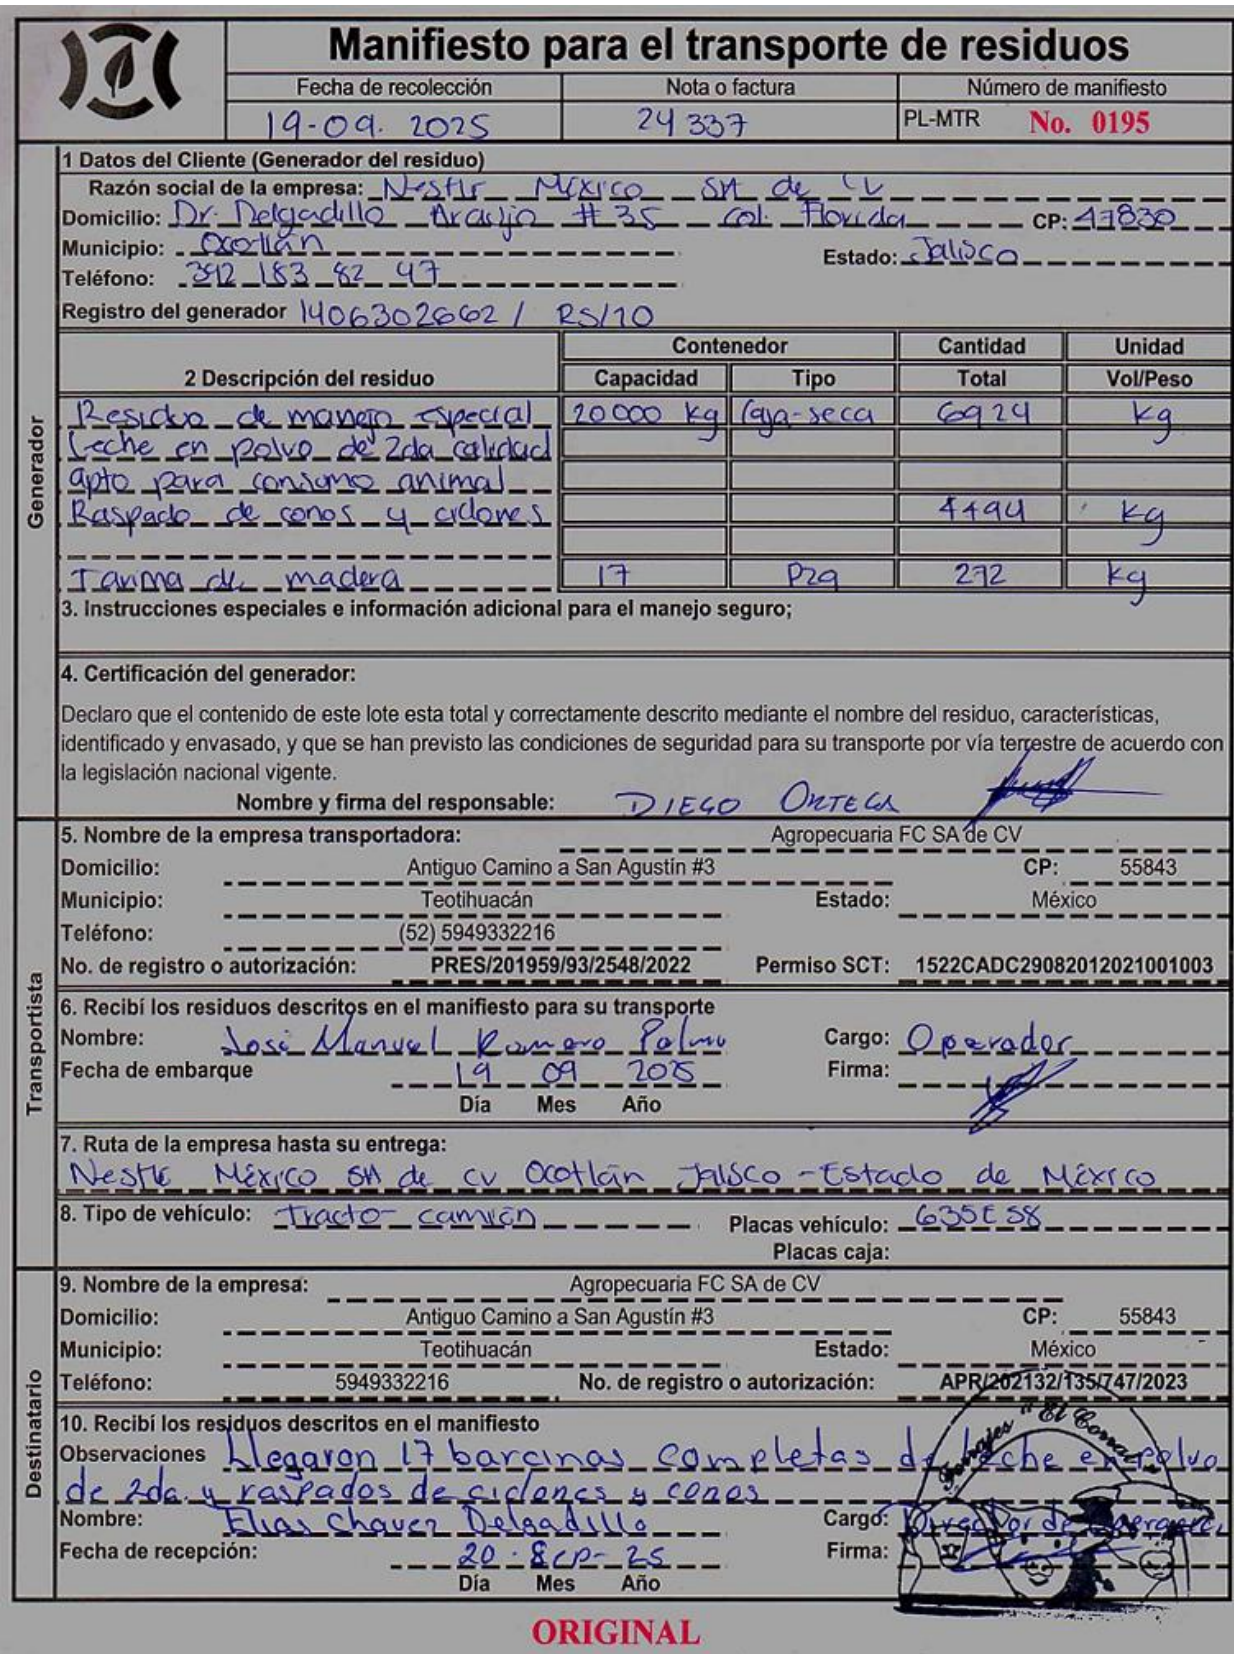 Manifiesto para el transporte de residuos
Fecha de recolección Nota o factura Número de manifiesto
19-09. 2025 24 337 PL-MTR No. 0195
1 Datos del Cliente (Generador del residuo)
Razón social de la empresa: Nestle México SA de CV
Domicilio: Dr. Delgadillo Araujo #35 col. Florida CP: 47830
Municipio: Ocotlán Estado: Jalisco
Teléfono: 392 183 82 47
Registro del generador 1406302662 / RS/10
Contenedor Cantidad Unidad
2 Descripción del residuo Capacidad Tipo Total Vol/Peso
Residuo de manejo especial 20000 kg Caja-seca 6924 kg
Leche en polvo de 2da calidad
apto para consumo animal
Raspado de conos y ciclones 4494 kg
Tarima de madera 17 Pza 272 kg
3. Instrucciones especiales e información adicional para el manejo seguro;
4. Certificación del generador:
Declaro que el contenido de este lote esta total y correctamente descrito mediante el nombre del residuo, características,
identificado y envasado, y que se han previsto las condiciones de seguridad para su transporte por vía terrestre de acuerdo con
la legislación nacional vigente.
Nombre y firma del responsable: DIEGO ORTEGA
Generador
5. Nombre de la empresa transportadora: Agropecuaria FC SA de CV
Domicilio: Antiguo Camino a San Agustín #3 CP: 55843
Municipio: Teotihuacán Estado: México
Teléfono: (52) 5949332216
No. de registro o autorización: PRES/201959/93/2548/2022 Permiso SCT: 1522CADC29082012021001003
6. Recibí los residuos descritos en el manifiesto para su transporte
Nombre: José Manuel Romero Palmo Cargo: Operador
Fecha de embarque 19 09 2025 Firma:
Día Mes Año
7. Ruta de la empresa hasta su entrega:
Nestle México SA de CV Ocotlán Jalisco - Estado de México
8. Tipo de vehículo: Tracto-camión Placas vehículo: 635E58
Placas caja:
Transportista
9. Nombre de la empresa: Agropecuaria FC SA de CV
Domicilio: Antiguo Camino a San Agustín #3 CP: 55843
Municipio: Teotihuacán Estado: México
Teléfono: 5949332216 No. de registro o autorización: APR/202132/135/747/2023
10. Recibí los residuos descritos en el manifiesto
Observaciones Llegaron 17 barcinas completas de leche en polvo
de 2da. y raspados de ciclones y conos
Nombre: Elias Chavez Delgadillo Cargo: Director de
Fecha de recepción: 20 - Sep - 25 Firma:
Día Mes Año
Destinatario
Forrajes "El Corral"
ORIGINAL